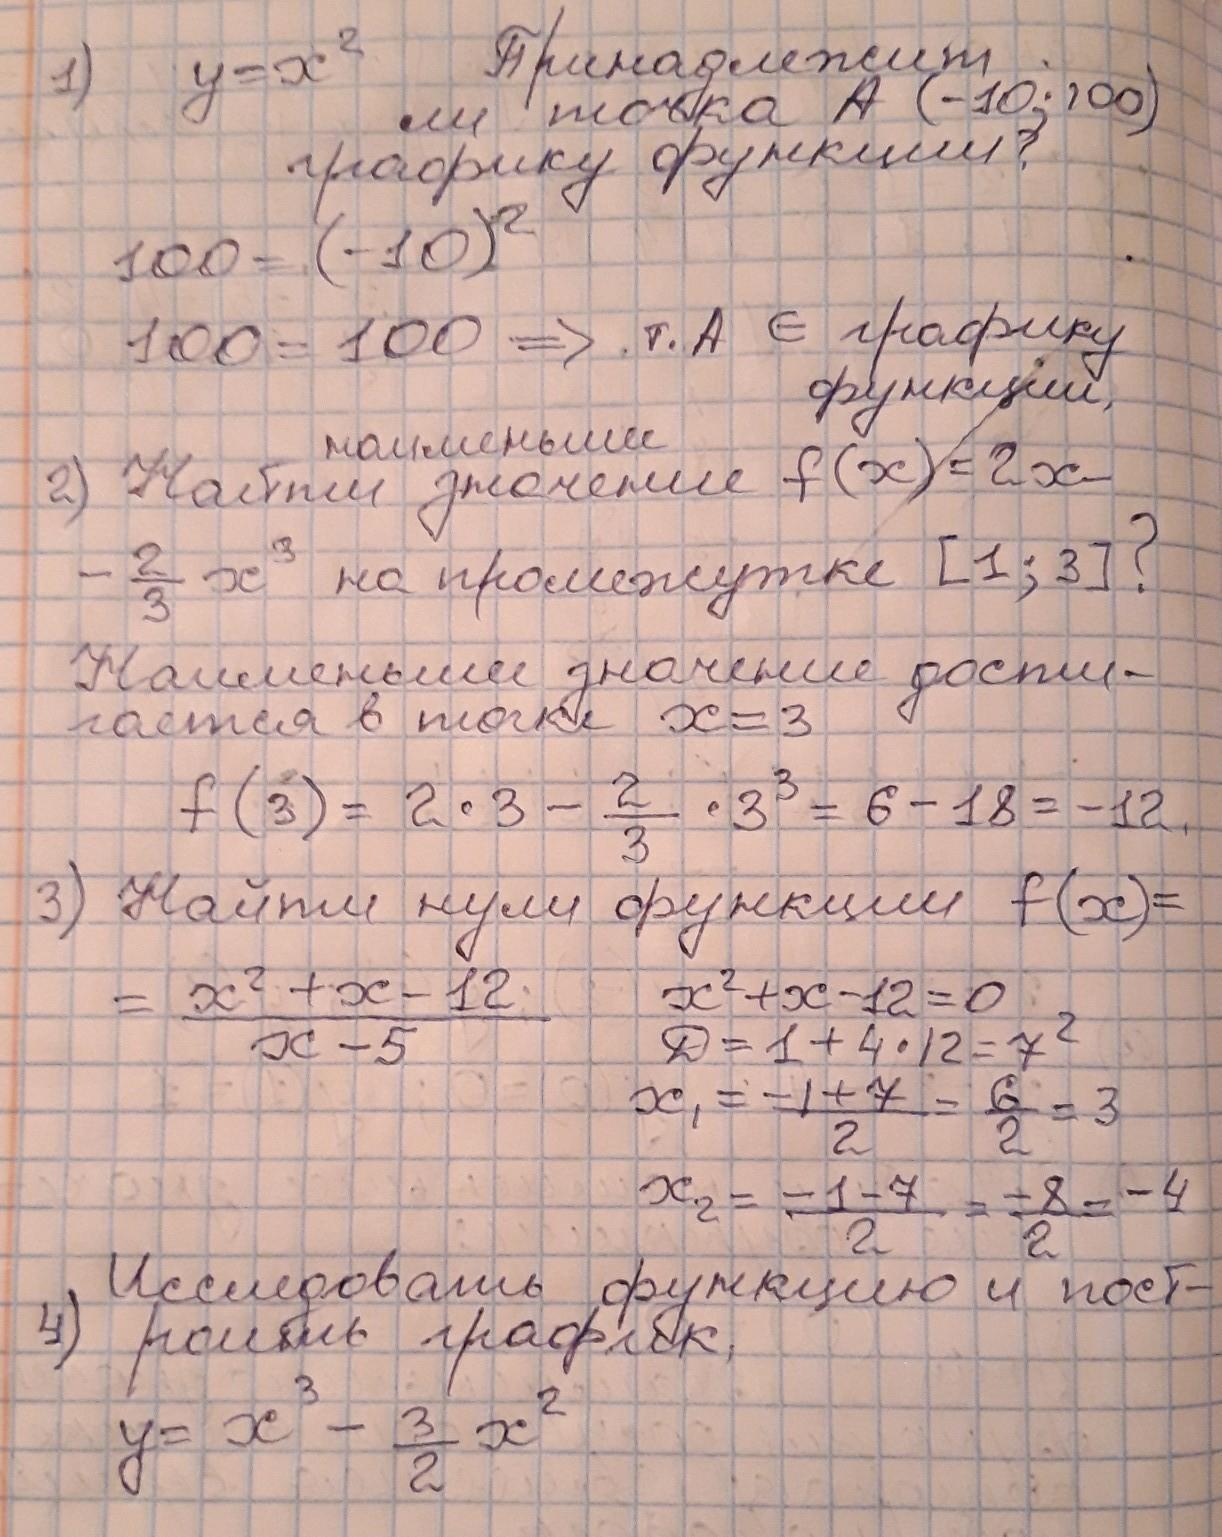 1) y=x² Принадлежит
ли точка А (-10; 100)
графику функции?
100 = (-10)²
100 = 100 => т. А ∈ графику
функции,
наименьшее
2) Найти значение f(x) = 2x-
- 2/3 x³ на промежутке [1; 3]?
Наименьшее значение дости-
гается в точке x = 3
f(3) = 2·3 - 2/3 · 3³ = 6 - 18 = -12.
3) Найти нули функции f(x)=
= (x² + x - 12)/(x - 5) x²+x-12=0
D = 1 + 4·12 = 7²
x₁ = (-1+7)/2 = 6/2 = 3
x₂ = (-1-7)/2 = -8/2 = -4
Исследовать функцию и пост-
4) роить график,
y = x³ - 3/2 x²